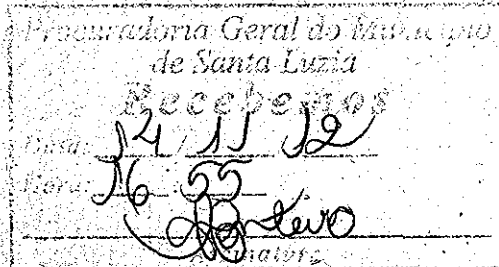 Procuradoria Geral do Município
de Santa Luzia
Recebemos
Data: 14 / 11 12
Hora: 16 55
Assinatura